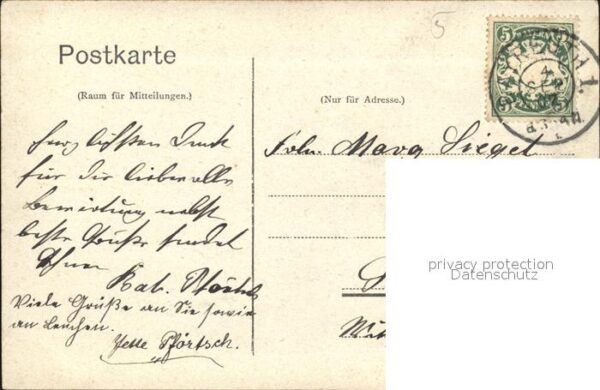 Postkarte
(Raum für Mitteilungen.)
Herzlichsten Dank
für die liebevolle
Bewirtung nebst
beste Grüße sendet
Ihnen
Kat.
Viele Grüße an Sie sowie
an Lenchen.
Jette Pförtsch.
5
(Nur für Adresse.)
Frln. Marg Siegel
5
privacy protection
Datenschutz